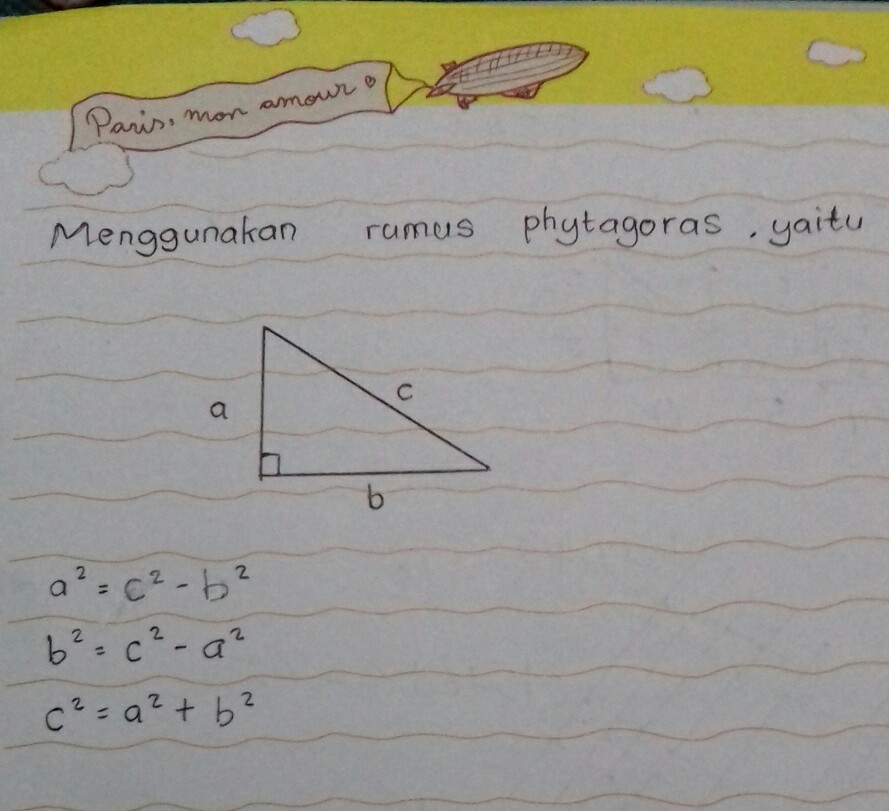 Paris, mon amour
Menggunakan rumus phytagoras, yaitu
a
c
b
a² = c² - b²
b² = c² - a²
c² = a² + b²